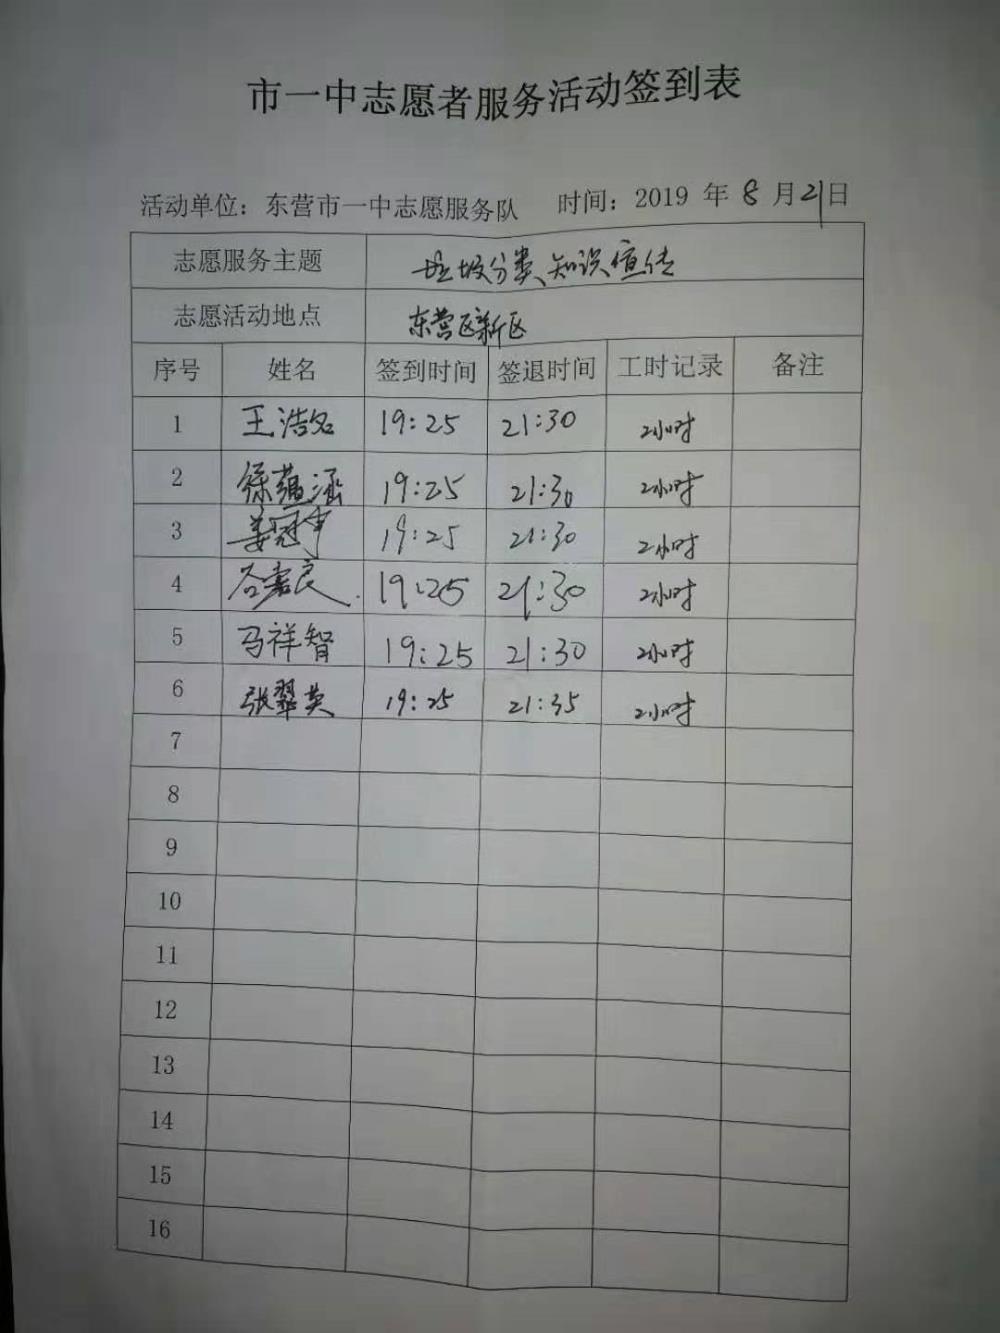 市一中志愿者服务活动签到表
活动单位：东营市一中志愿服务队 时间：2019 年 8 月 21 日
志愿服务主题 垃圾分类知识宣传
志愿活动地点 东营区新区
序号 姓名 签到时间 签退时间 工时记录 备注
1 王浩名 19:25 21:30 2小时
2 徐蕴涵 19:25 21:30 2小时
3 姜冠宇 19:25 21:30 2小时
4 谷嘉良 19:25 21:30 2小时
5 马祥智 19:25 21:30 2小时
6 张翠英 19:25 21:35 2小时
7
8
9
10
11
12
13
14
15
16